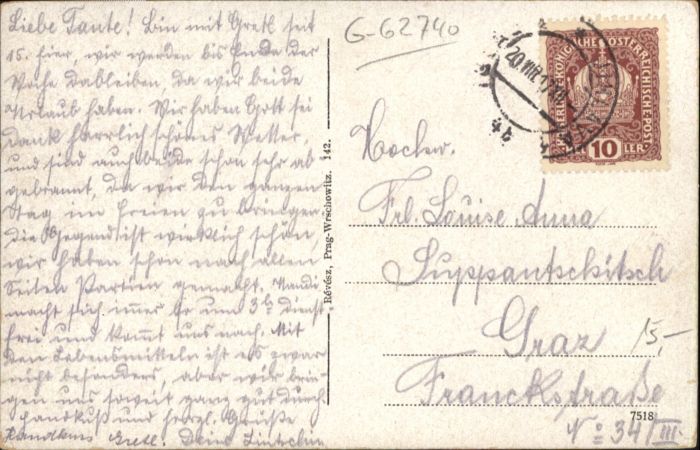 Liebe Tante! Bin mit Gretl seit
15. hier, wir werden bis Ende der
Woche dableiben, da wir beide
Urlaub haben. Wir haben Gott sei
dank herrlich schönes Wetter,
und sind auch beide schon sehr ab
gebrannt, da wir den ganzen
Tag im freien zu bringen.
die Gegend ist wirklich schön,
wir haben schon nach allen
Seiten Partien gemacht.
macht sich immer so um 3h dienst
frei und kommt uns nach. Mit
den Lebensmitteln ist es zwar
nicht besonders, aber wir brin-
gen uns soweit ganz gut durch.
Handkuß und herzl. Grüße
Handkuss Gretl. Deine
Révész, Prag-Wrschowitz. 142.
G-62740
KAIS. KÖNIGLICHE ÖSTERREICHISCHE POST
10 HELLER
Hochw.
Frl. Louise Anna
Suppantschitsch
Graz
15,-
Franckstraße
7518
No 34/III.